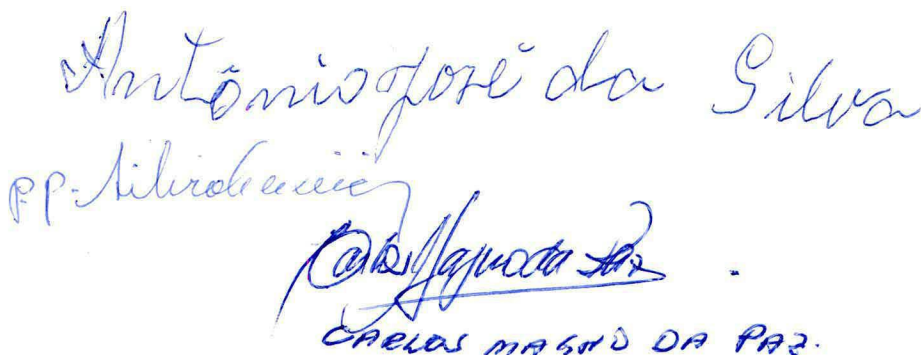 Antônio José da Silva
pp.
Carlos Magno da Paz
CARLOS MAGNO DA PAZ.